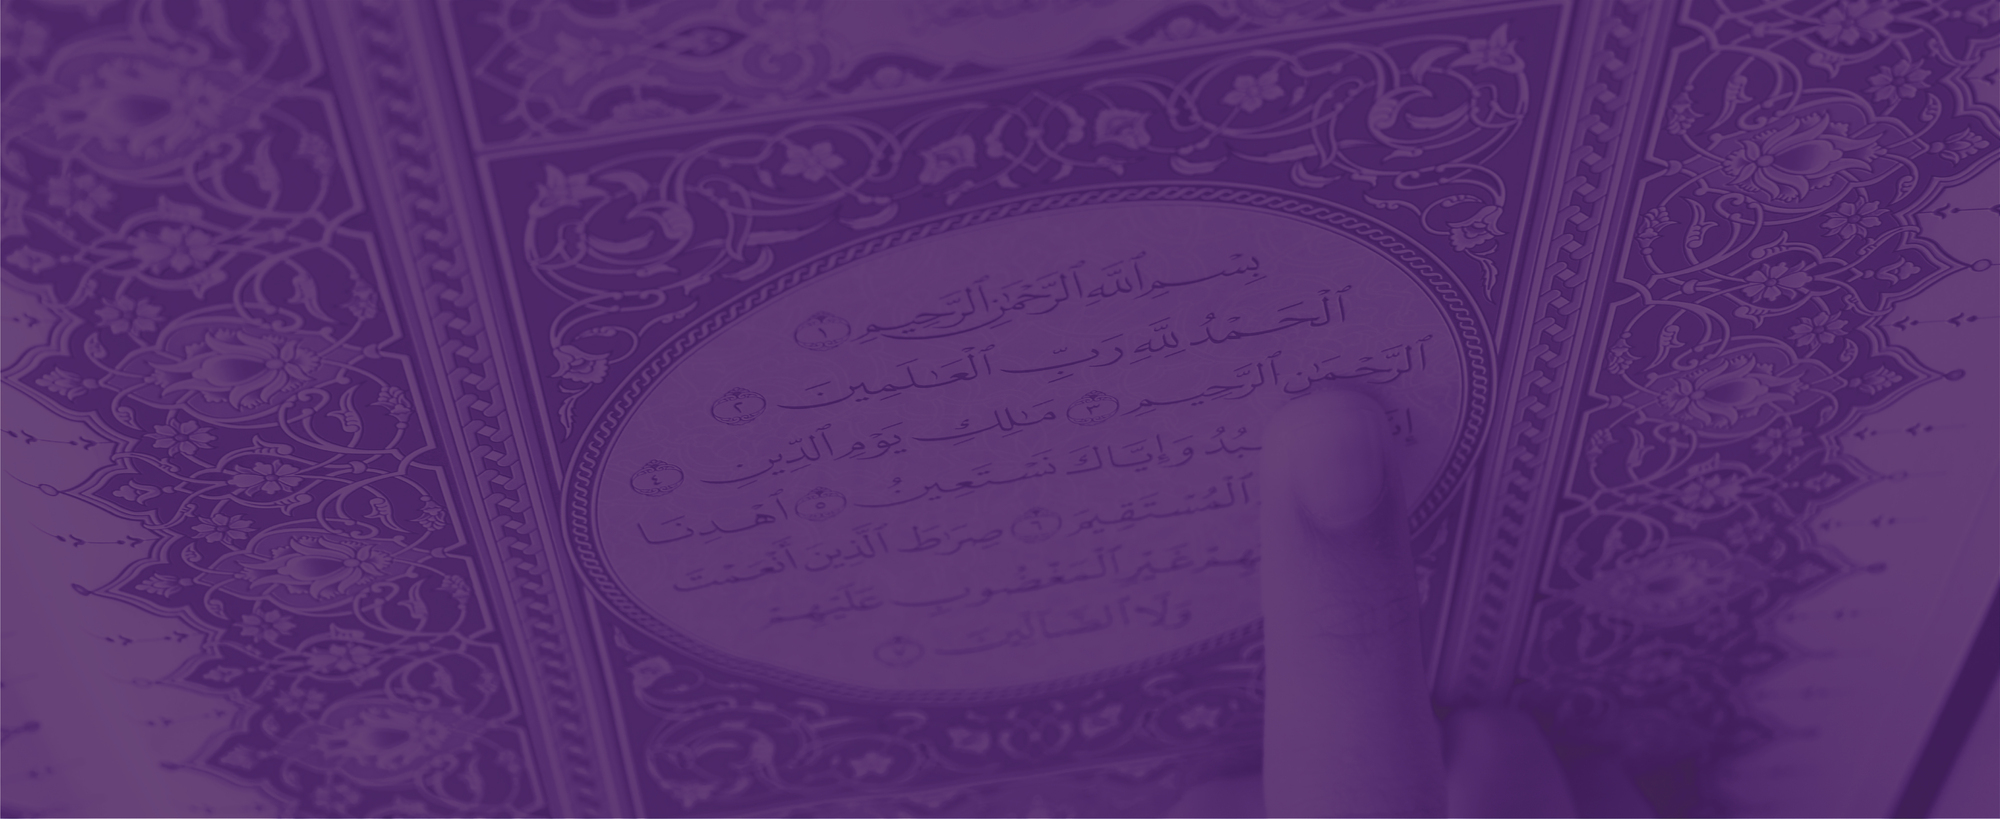 بِسْمِ ٱللَّهِ ٱلرَّحْمَٰنِ ٱلرَّحِيمِ ١
ٱلْحَمْدُ لِلَّهِ رَبِّ ٱلْعَٰلَمِينَ ٢
ٱلرَّحْمَٰنِ ٱلرَّحِيمِ ٣ مَٰلِكِ يَوْمِ ٱلدِّينِ ٤
وَإِيَّاكَ نَسْتَعِينُ ٥ ٱهْدِنَا
ٱلْمُسْتَقِيمَ ٦ صِرَٰطَ ٱلَّذِينَ أَنْعَمْتَ
غَيْرِ ٱلْمَغْضُوبِ عَلَيْهِمْ
وَلَا ٱلضَّآلِّينَ ٧